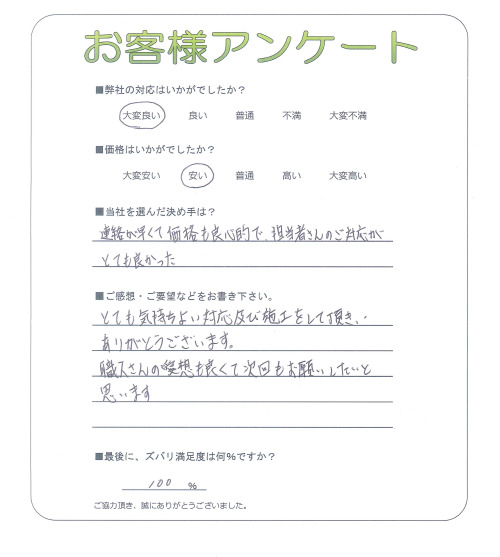 お客様アンケート
■弊社の対応はいかがでしたか？
大変良い 良い 普通 不満 大変不満
■価格はいかがでしたか？
大変安い 安い 普通 高い 大変高い
■当社を選んだ決め手は？
連絡が早くて価格も良心的で、担当者さんのご対応が
とても良かった
■ご感想・ご要望などをお書き下さい。
とても気持ちよい対応及び施工をして頂き、
ありがとうございます。
職人さんの愛想も良くて次回もお願いしたいと
思います
■最後に、ズバリ満足度は何%ですか？
100 %
ご協力頂き、誠にありがとうございました。